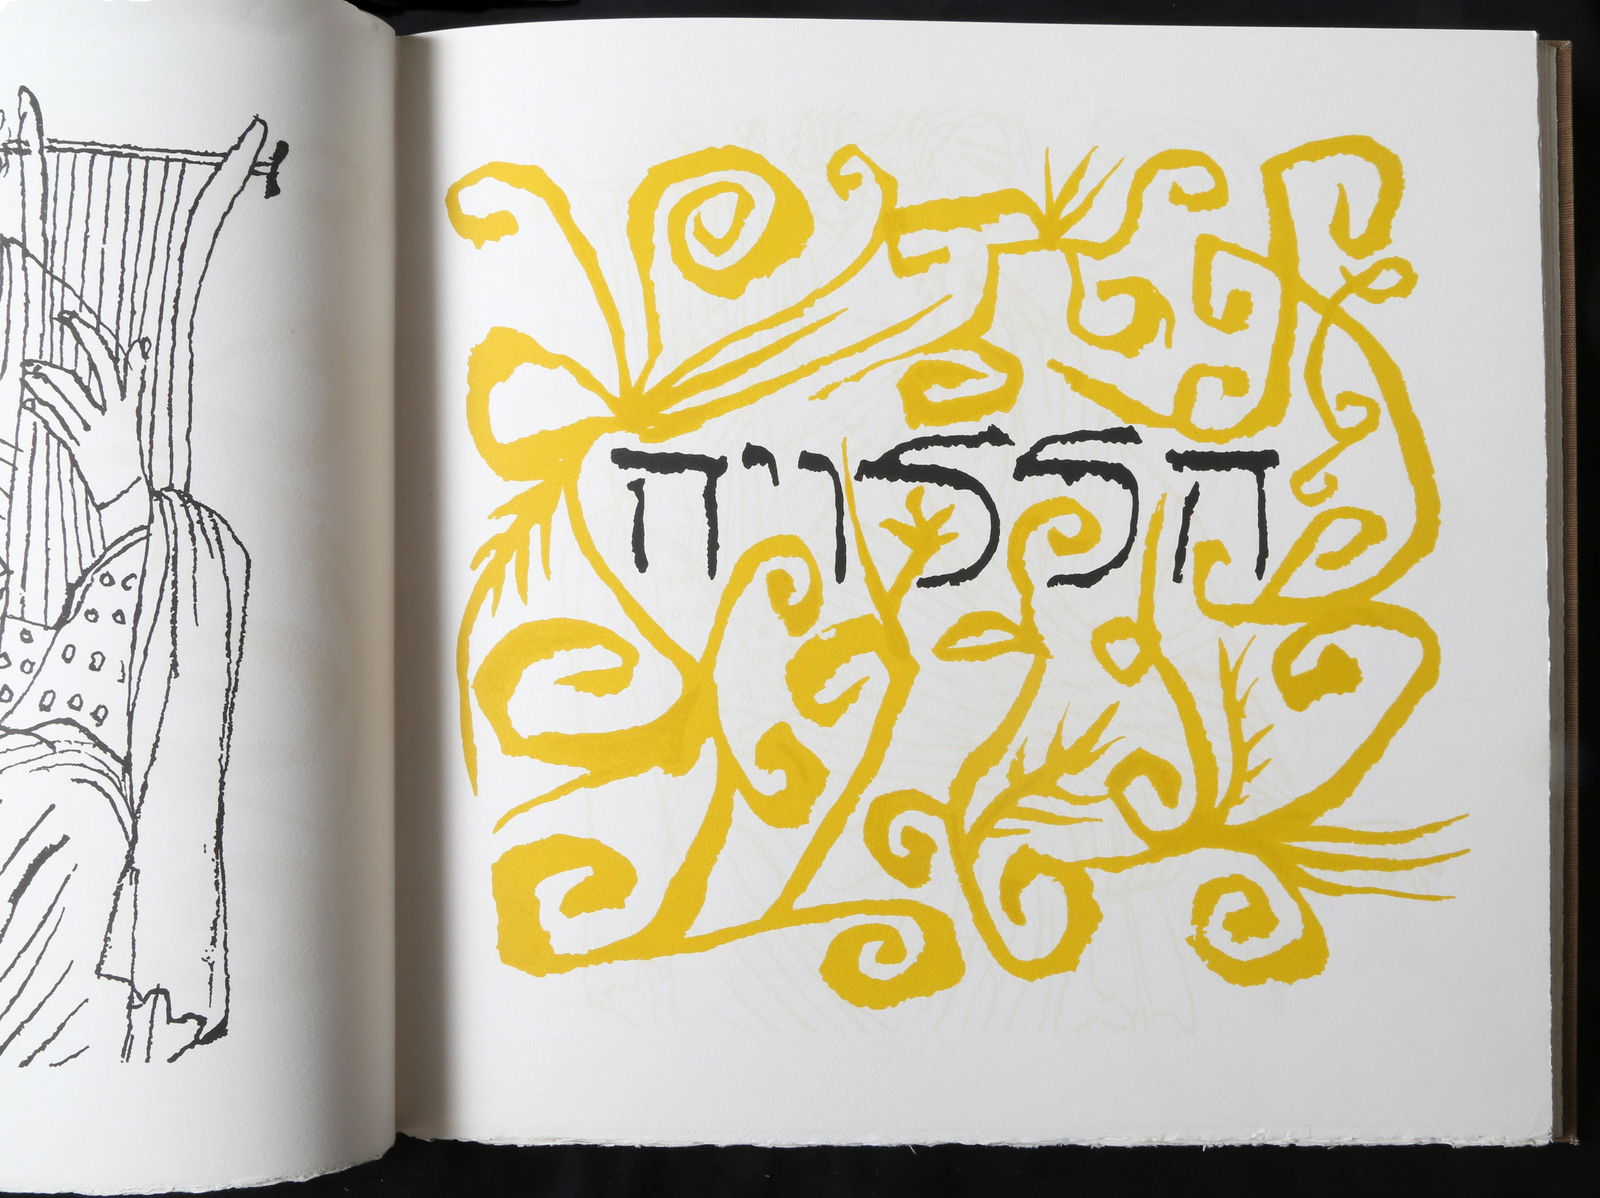 הללויה